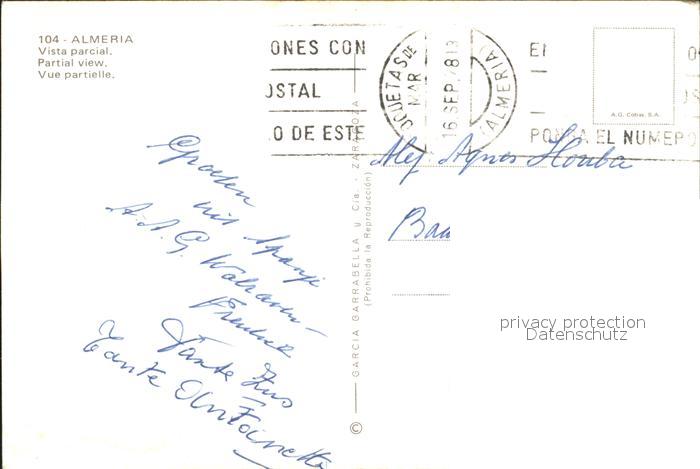 104 - ALMERIA
Vista parcial.
Partial view.
Vue partielle.
ONES CON
OSTAL
O DE ESTE
ROQUETAS DE MAR
16 SEP. 78 13
(ALMERIA)
PONGA EL NUMERO
A.G. Cobas, S.A.
Mej Agnes Houba
Groeten
uit Spanje
A.A.G.
Tante Zus
Tante Antoinette
GARCIA GARRABELLA y Cía. - ZARAGOZA
(Prohibida la Reproducción)
©
privacy protection
Datenschutz